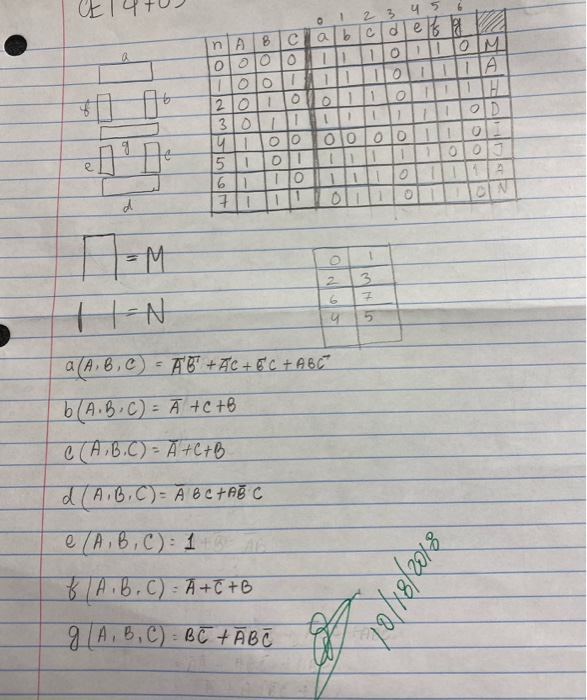 0 1 2 3 4 5 6
n A B C a b c d e f g
0 0 0 0 1 1 1 0 1 1 0 M
1 0 0 1 1 1 1 0 1 1 1 A
2 0 1 0 0 1 1 0 1 1 1 H
3 0 1 1 1 1 1 1 1 1 0 D
4 1 0 0 0 0 0 0 1 1 0 I
5 1 0 1 1 1 1 1 1 0 0 J
6 1 1 0 1 1 1 0 1 1 1 A
7 1 1 1 0 1 1 0 1 1 0 N
a
f b
g
e c
d
= M
= N
0 1
2 3
6 7
4 5
a(A,B,C) = A̅B̅ + A̅C + B̅C + ABC̅
b(A,B,C) = A̅ + C + B
c(A,B,C) = A̅ + C + B
d(A,B,C) = A̅BC + AB̅C
e(A,B,C) = 1
f(A,B,C) = A̅ + C̅ + B
g(A,B,C) = BC̅ + A̅BC̅
10/18/2018